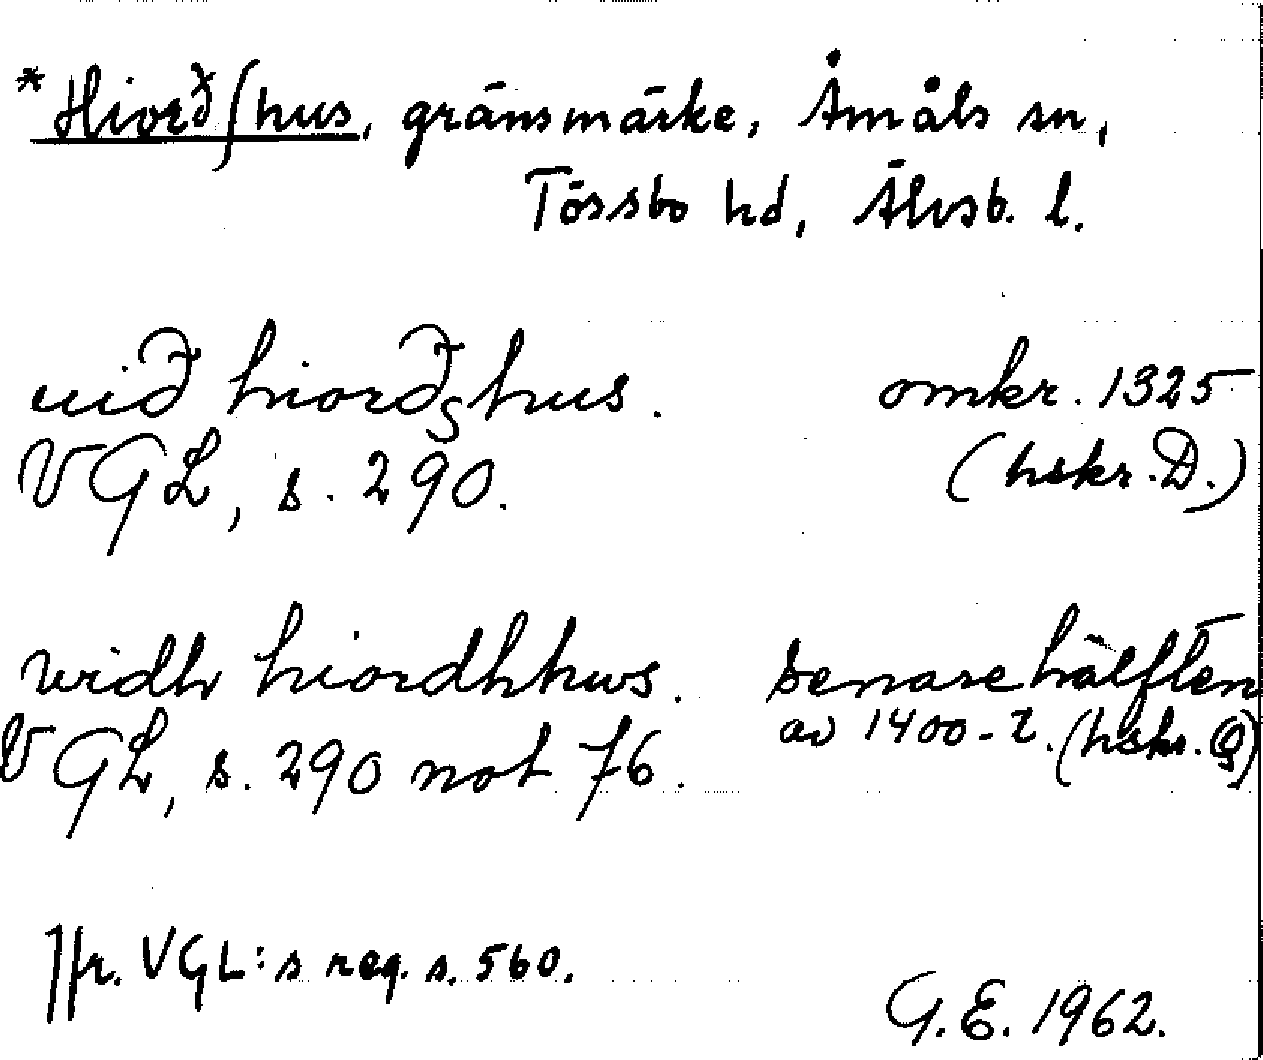 *Hiorðſhus, gränsmärke, Åmåls sn,
Tössbo hd, Älvsb. l.
uið hiorðshus. omkr. 1325
VGL, s. 290. (hskr. D.)
widh hiordhhws. senare hälften
VGL, s. 290 not 76. av 1400-t. (hskr. Q)
Jfr. VGL:s reg. s. 560.
G.E. 1962.